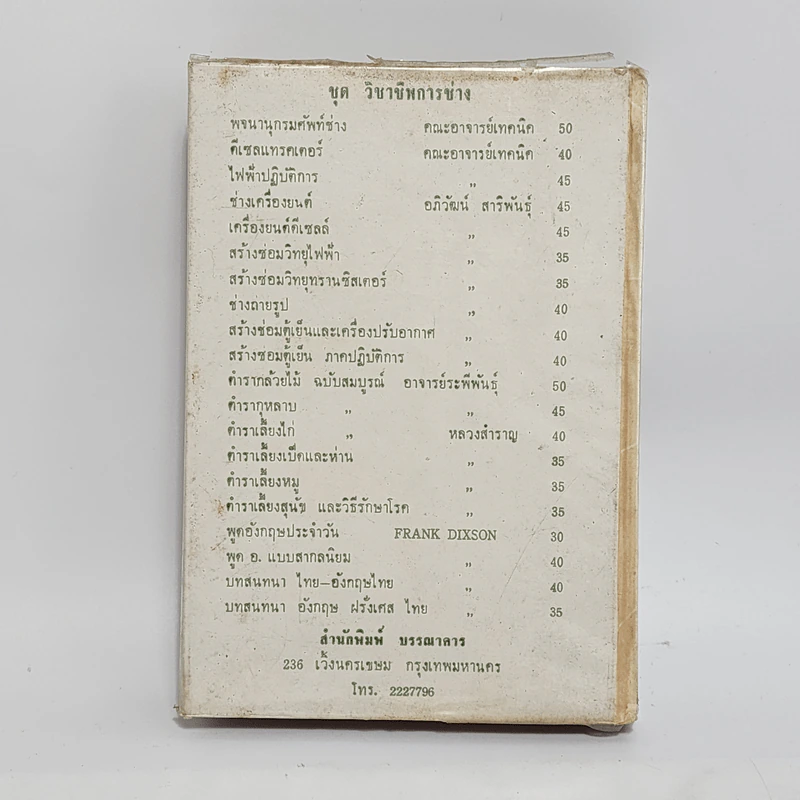 ชุด วิชาชีพการช่าง
พจนานุกรมศัพท์ช่าง คณะอาจารย์เทคนิค 50
ดีเซลแทรคเตอร์ คณะอาจารย์เทคนิค 40
ไฟฟ้าปฏิบัติการ „ 45
ช่างเครื่องยนต์ อภิวัฒน์ สาริพันธุ์ 45
เครื่องยนต์ดีเซลล์ „ 45
สร้างซ่อมวิทยุไฟฟ้า „ 35
สร้างซ่อมวิทยุทรานซิสเตอร์ „ 35
ช่างถ่ายรูป „ 40
สร้างซ่อมตู้เย็นและเครื่องปรับอากาศ „ 40
สร้างซ่อมตู้เย็น ภาคปฏิบัติการ „ 40
ตำรากล้วยไม้ ฉบับสมบูรณ์ อาจารย์ระพีพันธุ์ 50
ตำรากุหลาบ „ „ 45
ตำราเลี้ยงไก่ „ หลวงสำราญ 40
ตำราเลี้ยงเป็ดและห่าน „ 35
ตำราเลี้ยงหมู „ 35
ตำราเลี้ยงสุนัข และวิธีรักษาโรค „ 35
พูดอังกฤษประจำวัน FRANK DIXSON 30
พูด อ. แบบสากลนิยม „ 40
บทสนทนา ไทย–อังกฤษไทย „ 40
บทสนทนา อังกฤษ ฝรั่งเศส ไทย „ 35
สำนักพิมพ์ บรรณาคาร
236 เวิ้งนครเขษม กรุงเทพมหานคร
โทร. 2227796